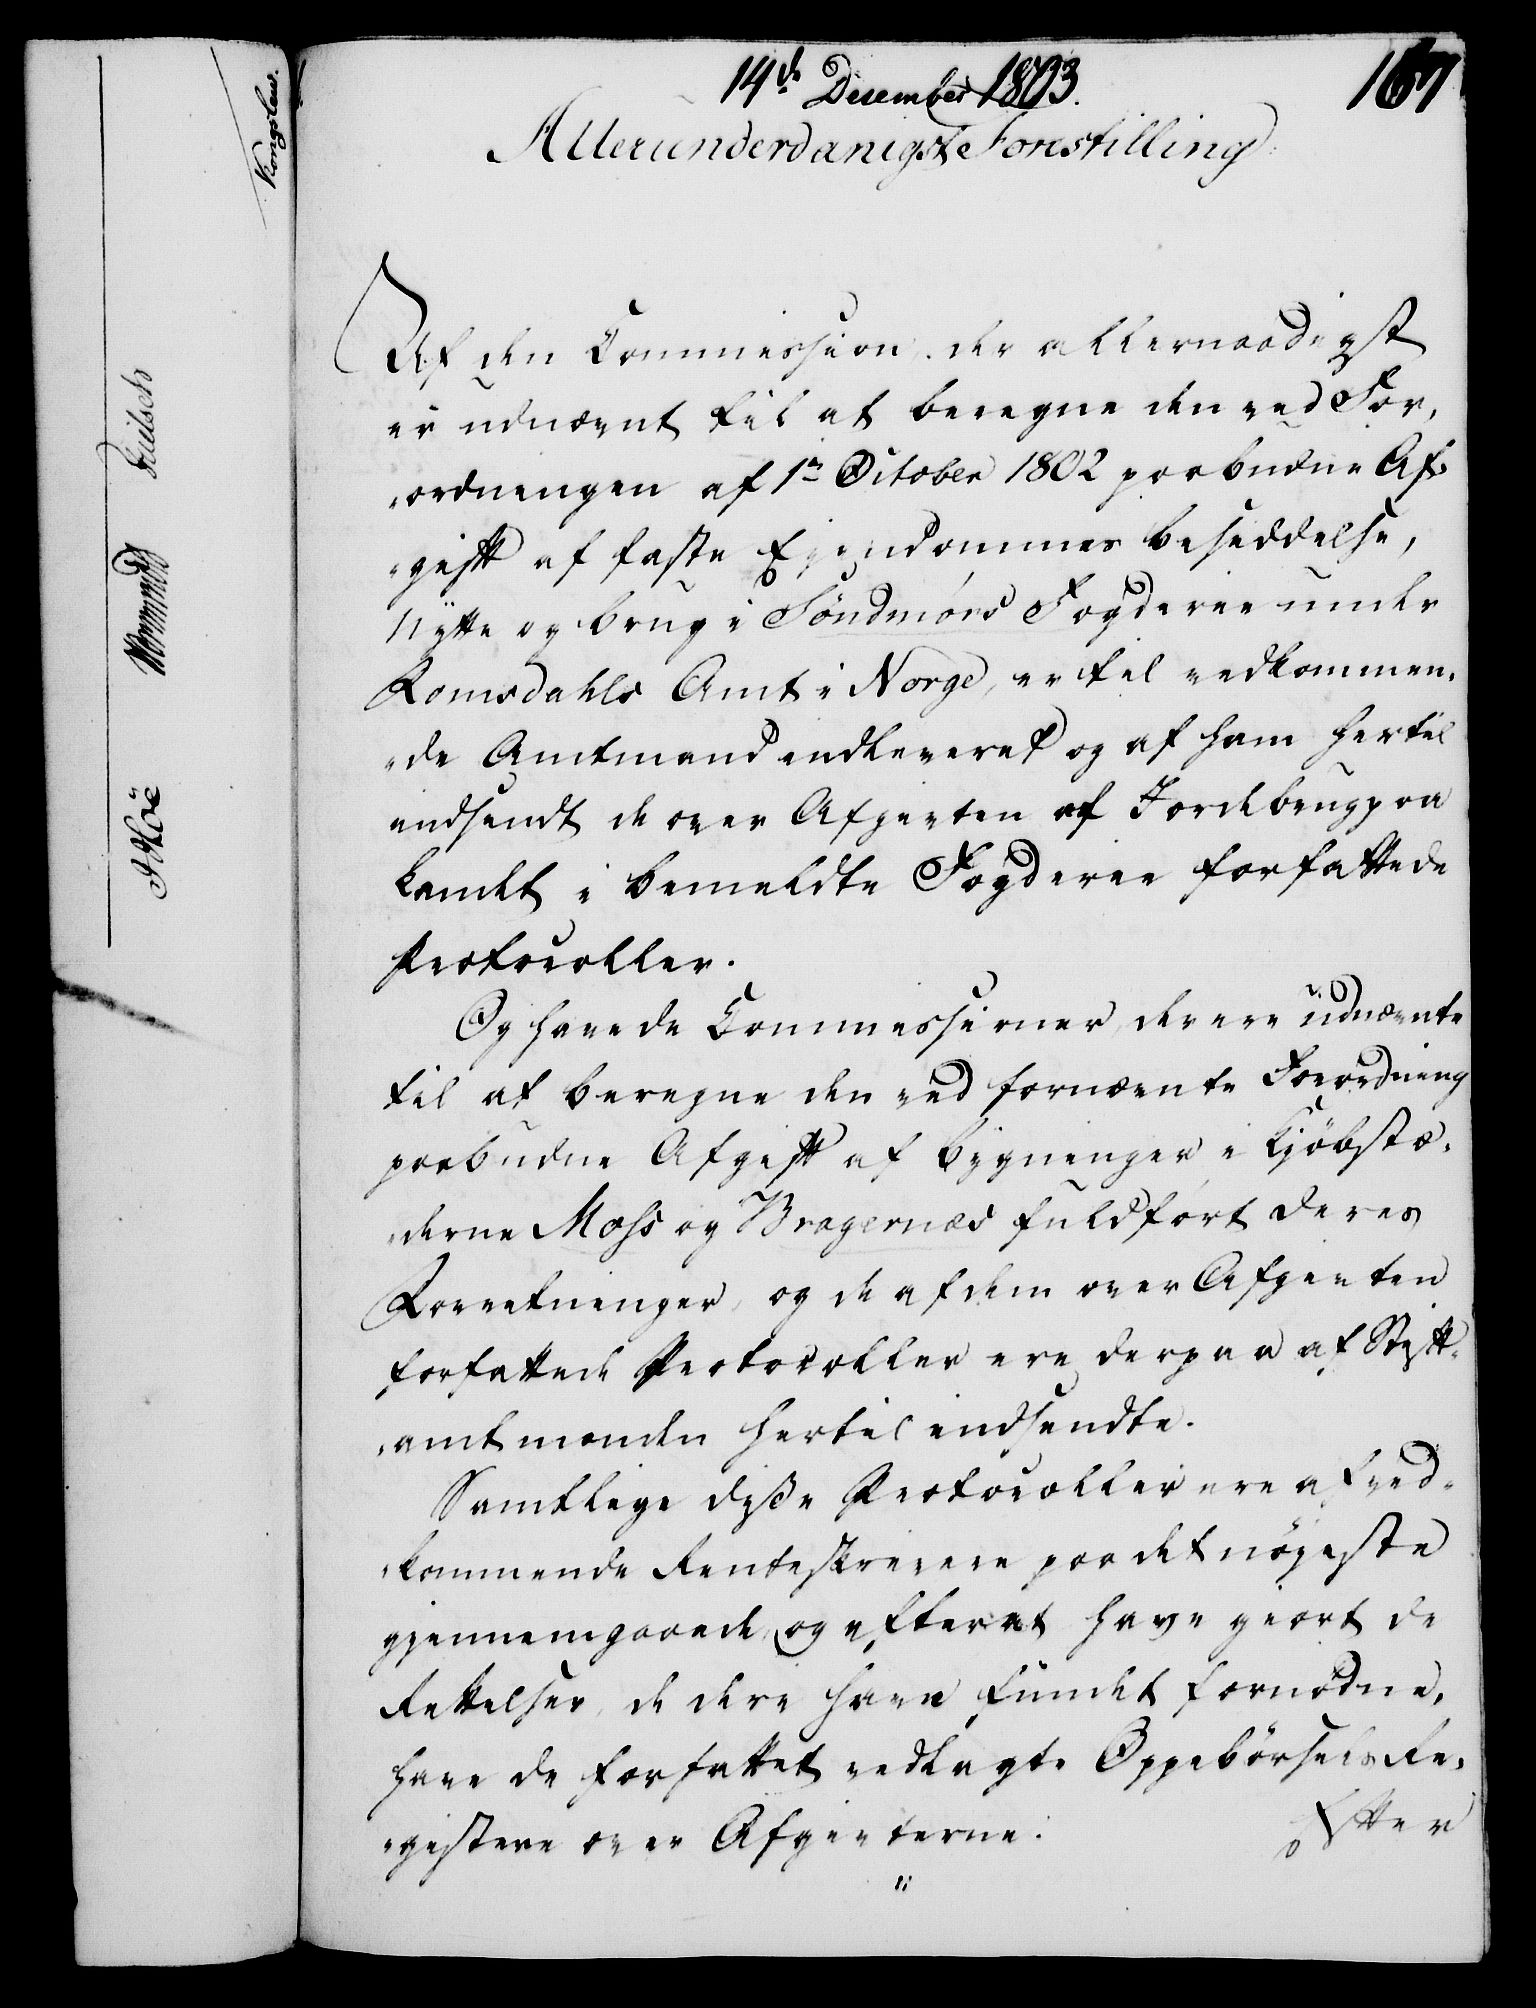 14de December 1803.
167
Allerunderdanigst Forestilling
Af den Commission, der allernaadigst
er udnævnt til at beregne den ved For„
„ordningen af 1te October 1802 paabudne Af„
„gift af faste Ejendommes besiddelse,
Nytte og brug i Söndmörs Fogderie under
Romsdahls Amt i Norge, er til vedkommen„
„de Amtmand indleveret og af ham hertil
indsendt de over Afgivten af Jordebrug paa
Landet i bemeldte Fogderie forfattede
Protocoller.
Og have de Commissioner, der ere udnævnte
til at beregne den ved fornævnte Forordning
paabudne Afgift af bygninger i Kjöbstæ„
„derne Moss og Bragernæs fuldfört deres
Forretninger, og de af dem over Afgivten
forfattede Protocoller ere derpaa af Stift„
„amtmanden hertil indsendte.
Samtlige disse Protocoller ere af ved„
„kommende Renteskrivere paa det nöyeste
gjennemgaaede, og efterat have giort de
Rettelser, de deri have fundet fornödne,
have de forfattet vedlagte Oppebörsels Re„
„gistere over Afgivterne.
Efter
Kongslew.
Wormskiold